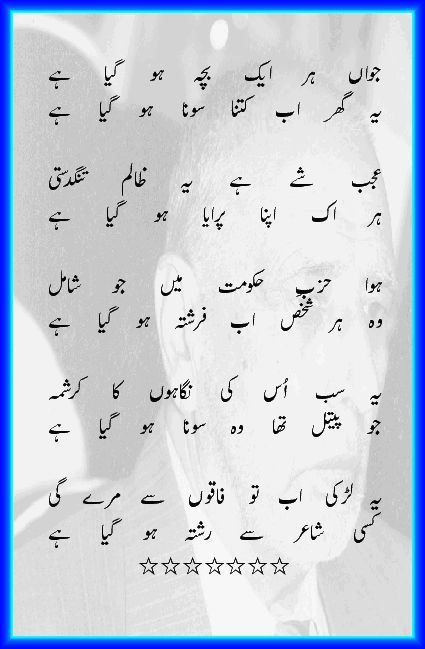 جواں ہر ایک بچہ ہو گیا ہے
یہ گھر اب کتنا سونا ہو گیا ہے
عجب شے ہے یہ ظالم تنگدستی
ہر اک اپنا پرایا ہو گیا ہے
ہوا حزبِ حکومت میں جو شامل
وہ ہر شخص اب فرشتہ ہو گیا ہے
یہ سب اُس کی نگاہوں کا کرشمہ
جو پیتل تھا وہ سونا ہو گیا ہے
یہ لڑکی اب تو فاقوں سے مرے گی
کسی شاعر سے رشتہ ہو گیا ہے
☆☆☆☆☆☆☆